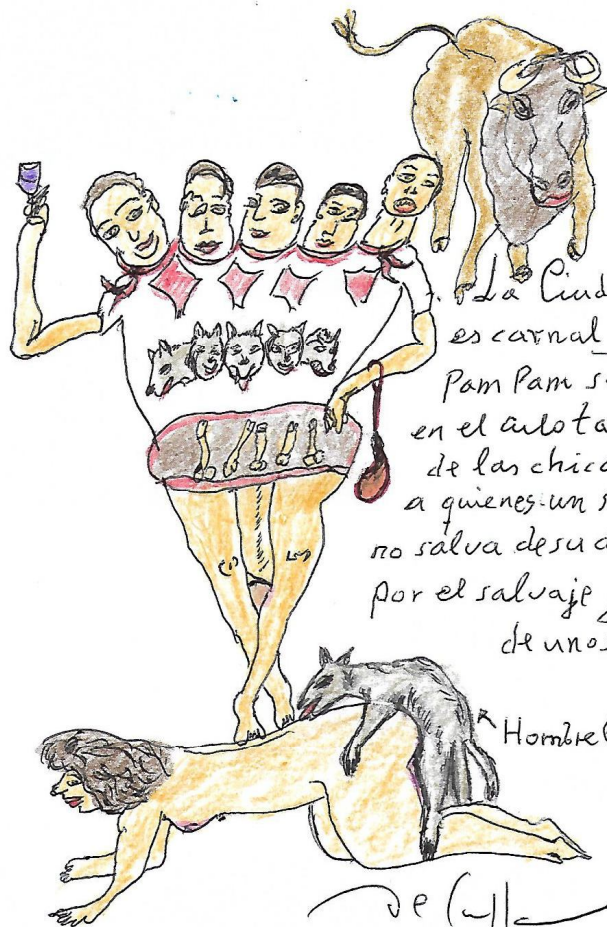 . La Ciud
es carnal
Pam Pam s
en el culo ta
de las chica
a quienes un s
no salva de su a
por el salvaje
de unos
Hombre
de Culla